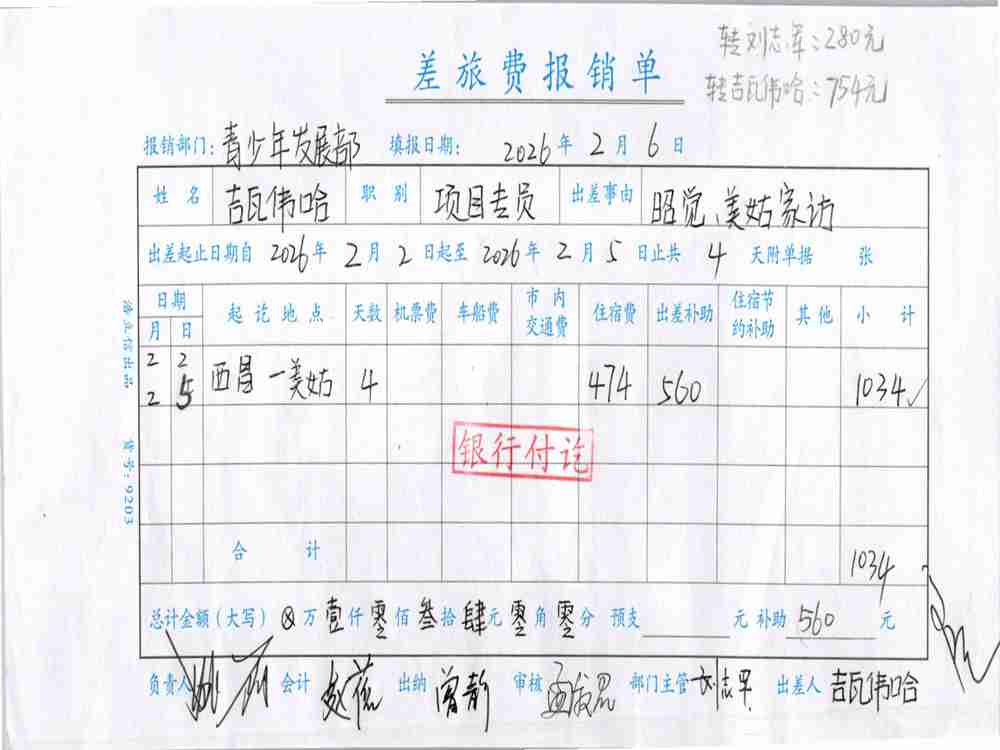 转刘志军：280元
转吉瓦伟哈：754元
差旅费报销单
报销部门：青少年发展部 填报日期： 2026年2月6日
姓名 吉瓦伟哈 职别 项目专员 出差事由 昭觉、美姑家访
出差起止日期自2026年2月2日起至2026年2月5日止共4天附单据 张
日期 起讫地点 天数 机票费 车船费 市内交通费 住宿费 出差补助 住宿节约补助 其他 小计
月 日
2 2
2 5 西昌—美姑 4 474 560 1034✓
银行付讫
合计 1034
总计金额（大写）⊗万壹仟零佰叁拾肆元零角零分 预支 元 补助560元
负责人 会计 出纳 曾静 审核 部门主管 刘志军 出差人 吉瓦伟哈
货号：9203